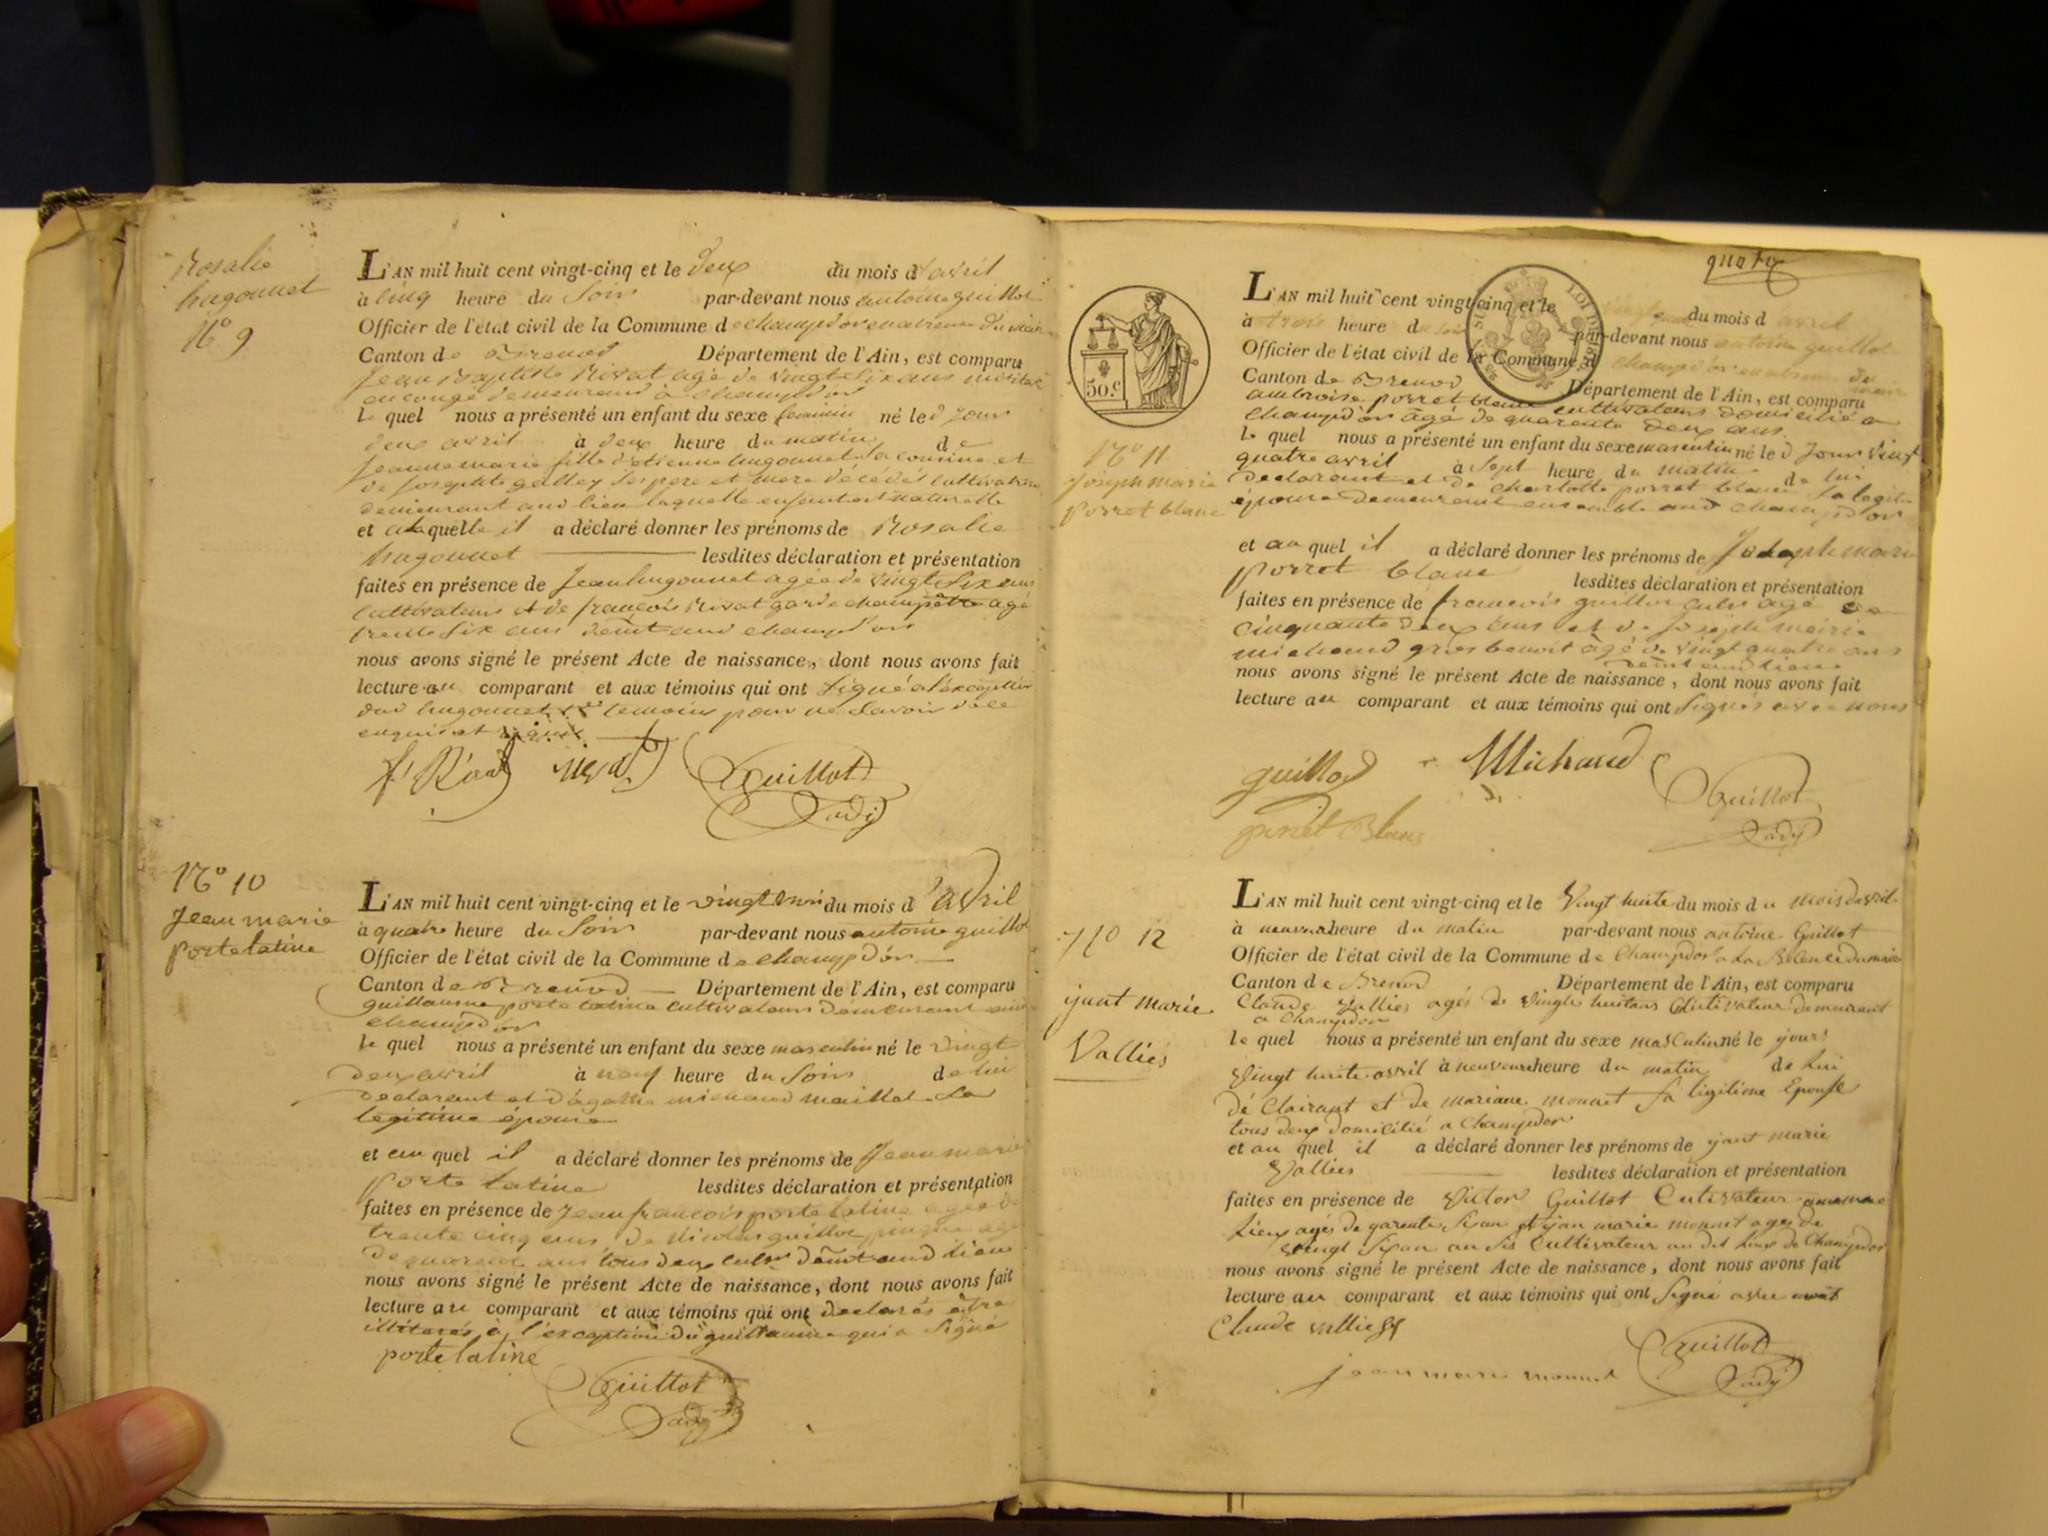 Rosalie
hugonnet
N.° 9
L'AN mil huit cent vingt-cinq et le deux du mois d'avril
à cinq heure du Soir par-devant nous antoine guillot
Officier de l'état civil de la Commune de champdor en absence du maire
Canton de Brenod Département de l'Ain, est comparu
Jean Baptiste Rivat agé de vingt six ans militaire
en congé demeurand à champdor
le quel nous a présenté un enfant du sexe feminin né le d jour
deux avril à deux heure du matin de
Jeanne marie fille d'etienne hugonnet sa cousine et
de Josephte galley ses pere et mere décédés cultivateurs
demeurant aud lieu laquelle enfant est naturelle
et a laquelle il a déclaré donner les prénoms de Rosalie
hugonnet lesdites déclaration et présentation
faites en présence de Jean hugonnet agée de vingt six ans
cultivateurs et de françois Rivat garde champêtre agé
trente six ans demt aud champdor
nous avons signé le présent Acte de naissance, dont nous avons fait
lecture au comparant et aux témoins qui ont signé à l'exception
dud hugonnet temoins pour ne savoir de ce
enquis et requis
f. Rivat rivat Guillot
adj
N.° 10
Jean marie
porte latine
L'AN mil huit cent vingt-cinq et le vingt trois du mois d'avril
à quatre heure du Soir par-devant nous antoine guillot
Officier de l'état civil de la Commune de champdor
Canton de Brenod Département de l'Ain, est comparu
guillaume porte latine cultivateurs demeurant aud
champdor
le quel nous a présenté un enfant du sexe masculin né le vingt
deux avril à neuf heure du Soir de lui
declarant et d'agathe michaud maillet sa
legitime épouse
et au quel il a déclaré donner les prénoms de Jean marie
porte latine lesdites déclaration et présentation
faites en présence de Jean françois porte latine agée de
trente cinq ans de Nicolas guillot agé
de quarent ans tous deux cultr demt aud lieu
nous avons signé le présent Acte de naissance, dont nous avons fait
lecture au comparant et aux témoins qui ont declarés être
illiterés à l'exception du guillaume qui a signé
porte latine
Guillot
adj
quatre
50.c
LOI DE
N.° 11
Joseph marie
porret blanc
L'AN mil huit cent vingt-cinq et le du mois d avril
à trois heure du soir par-devant nous antoine guillot
Officier de l'état civil de la Commune de champdor en absence du maire
Canton de Brenod Département de l'Ain, est comparu
ambroise porret blanc cultivateurs domicilié a
champdor âgé de quarente deux ans
le quel nous a présenté un enfant du sexe masculin né le d Jour vingt
quatre avril à Sept heure du matin de lui
declarant et de charlotte porret blanc sa legit
épouse demeurant ensemble aud champdor
et au quel il a déclaré donner les prénoms de Joseph marie
porret blanc lesdites déclaration et présentation
faites en présence de françois guillot cultr agé de
cinquante deux ans et de Joseph marie
michaud gros benoit âgé de vingt quatre ans
demt aud lieu
nous avons signé le présent Acte de naissance, dont nous avons fait
lecture au comparant et aux témoins qui ont signés avec nous
guillot Michaud
Guillot
adj
porret Blanc
N° 12
ijant marie
Valliés
L'AN mil huit cent vingt-cinq et le Vingt huite du mois du mois davril
à neuveur heure du matin par-devant nous antoine Guillot
Officier de l'état civil de la Commune de Champdor a La Bsence du maire
Canton de Brenod Département de l'Ain, est comparu
Claude Vallies agés de Vingts huitans Cultivateur demeurant
a Champdor
le quel nous a présenté un enfant du sexe masculin né le jours
Vingt huite avril à neuveur heure du matin de Lui
dé Clairant et de mariane monnet sa ligitime Epouse
tous deux domicilié a Champdor
et au quel il a déclaré donner les prénoms de ijant marie
Vallies lesdites déclaration et présentation
faites en présence de Victor Guillot Cultivateur au meme
Lieux agés de garente sixan et ijan marie monnet ages de
vingt sixan au sis Cultivateur au dit Lieux de Champdor
nous avons signé le présent Acte de naissance, dont nous avons fait
lecture au comparant et aux témoins qui ont signé avec nous
Claude valliess
Guillot
adj
jean marie monnet